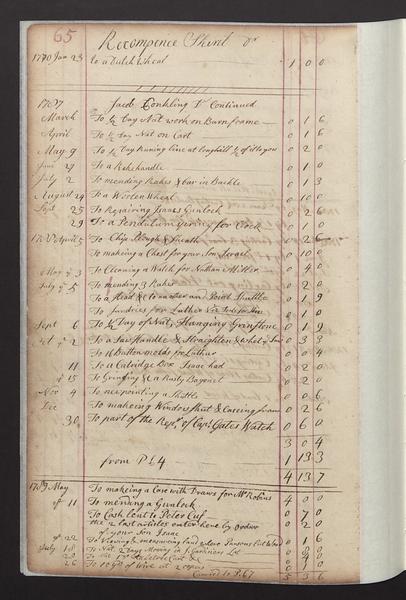 65 Recompence Sherril Dr
1770 Jan 23 to a Dutch Wheal 1 0 0
1787 Jacob Conkling Dr Continued
March To ½ Day Nat work on Barn frame 0 1 6
April To ½ Day Nat on Cart 0 1 6
May 9 To ½ Day Runing line at 0 2 0
June 27 To a Rakehandle 0 1 0
July 2 To mending Rakes & bar in Buckle 0 1 3
August 24 To a Woolen Wheal 0 10 0
Sept 25 To Repairing Isaacs Gunlock 0 2 6
29 To a Pendulum Spring for Clock 0 1 0
April 5 To Chip Plough & Sheath 0 2 6
To making a Chest for your Son Israel 0 10 0
May ye 3 To Cleaning a Watch for Nathan Miller 0 4 0
July ye 5 To mending 3 Rakes 0 2 0
To a Read & and Point Shuttle 0 1 9
To Sundries for Luther 0 1 0
Sept 6 To ½ Day of Nat, Hanging Grinstone 0 1 9
Oct ye 2 To a Saw Handle & Straighten & Whet ye Saw 0 3 3
To 16 Button molds for Luther 0 0 4
11 To a Catridge Box Isaac had 0 2 0
ye 15 To Grinding &c a Rusty Bayonet 0 2 0
Nov 4 To new pointing a Shuttle 0 0 6
Dec To making Window Shut & Caseing frame 0 2 6
30 To part of the Repr of Capt Gates Watch 0 6 0
3 0 4
from P 64 1 13 3
4 13 7
1789 May To making a Case with Draws for Mr Robins 4 0 0
ye 11 To mending a Gunlock
To Cash lent to Peter Cuf 0 7 0
the 2 last articles enter here by order 0 2 0
of your Son Isaac
ye 22 To Viewing & measuring land where Parsons Cut Wood 0 1 6
July 18 To Nat 2 Days Mowing in Gardiners Lot
20 To Nat
26 To 10 yds of Wire at 2 coppers
Carried to P. 67 5 3 6